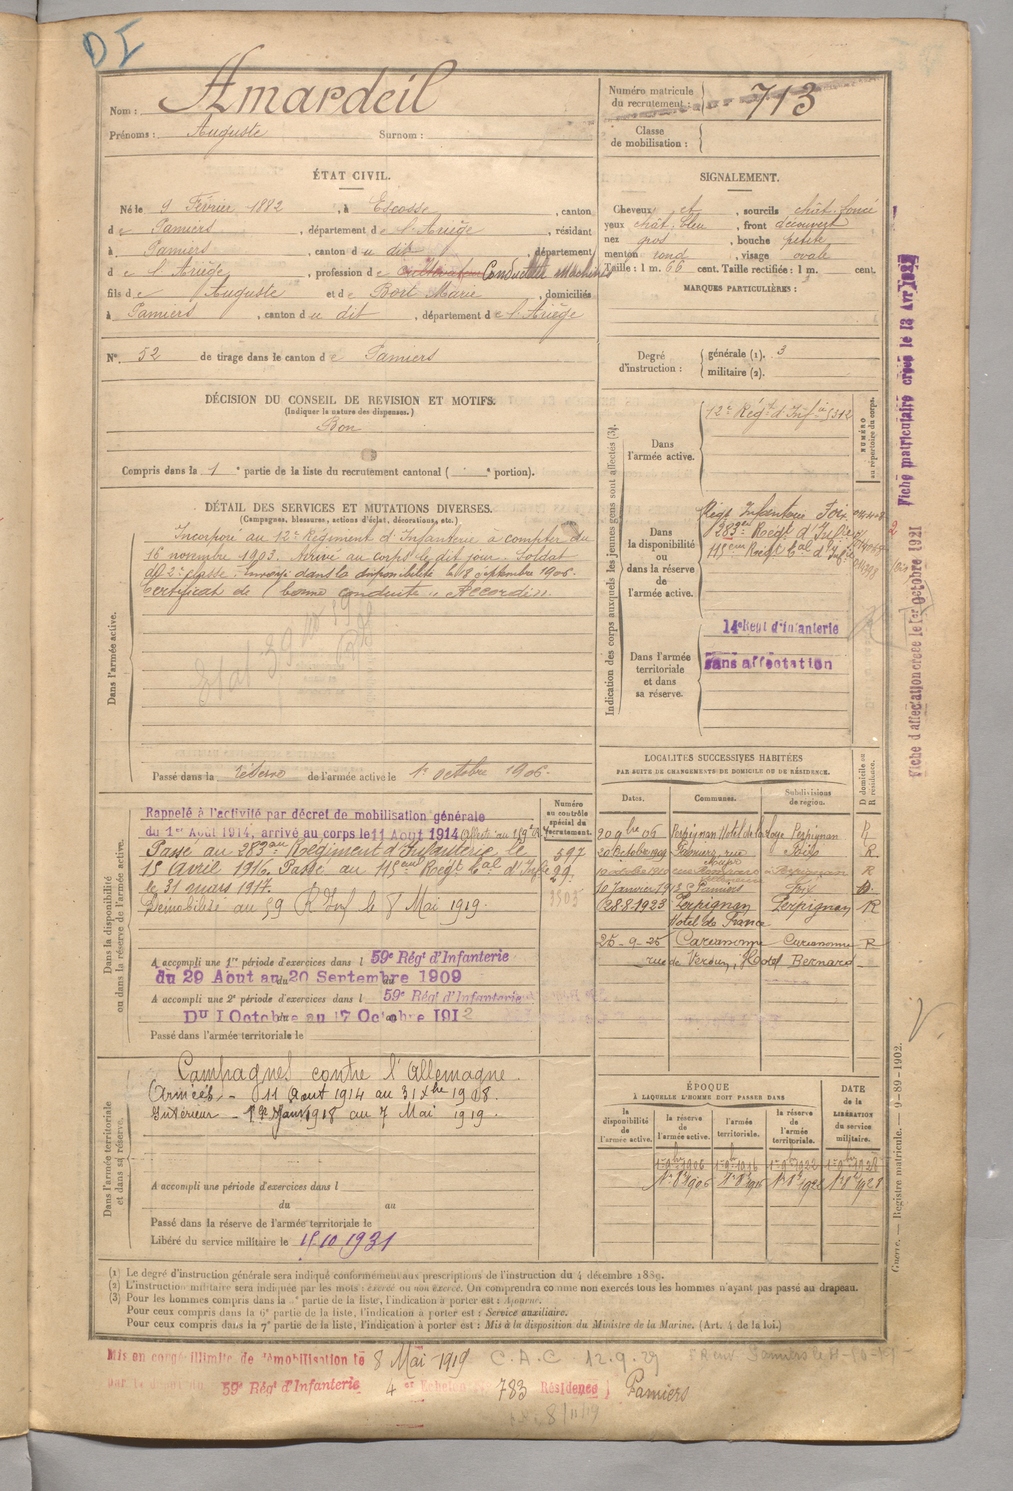 DI
Nom : Amardeil
Prénoms : Auguste Surnom :
Numéro matricule du recrutement : 713
Classe de mobilisation :
ÉTAT CIVIL.
Né le 9 Février 1882, à Escosse, canton
de Pamiers, département de l'Ariège, résidant
à Pamiers, canton du dit, département
de l'Ariège, profession de Cultivateur Conducteur Machines
fils de Auguste et de Bort Marie, domiciliés
à Pamiers, canton du dit, département de l'Ariège
N° 52 de tirage dans le canton de Pamiers
SIGNALEMENT.
Cheveux et, sourcils chât. foncé
yeux chât. bleu, front découvert
nez gros, bouche petite
menton rond, visage ovale
Taille : 1 m. 66 cent. Taille rectifiée : 1 m. cent.
MARQUES PARTICULIÈRES :
Degré d'instruction : générale (1). 3
militaire (2).
DÉCISION DU CONSEIL DE REVISION ET MOTIFS.
(Indiquer la nature des dispenses.)
Bon
Compris dans la 1e partie de la liste du recrutement cantonal ( e portion).
DÉTAIL DES SERVICES ET MUTATIONS DIVERSES.
(Campagnes, blessures, actions d'éclat, décorations, etc.)
Dans l'armée active.
Incorporé au 12e Régiment d'Infanterie à compter du
16 novembre 1903. Arrivé au corps le dit jour. Soldat
de 2e classe. Envoyé dans la disponibilité le 18 septembre 1906.
Certificat de bonne conduite "Accordé".
Passé dans la réserve de l'armée active le 1er octobre 1906.
Indication des corps auxquels les jeunes gens sont affectés (3).
NUMÉRO au répertoire du corps.
Dans l'armée active.
12e Régt d'Infie 5312
Dans la disponibilité ou dans la réserve de l'armée active.
Régt Infanterie Foix
283e Régt d'Infie
115eme Régt Cal d'Infie
Dans l'armée territoriale et dans sa réserve.
14e Régt d'Infanterie
Sans affectation
Fiche matriculaire créée le 13 Avr
Fiche d'affectation créée le 1er Octobre 1921
Dans la disponibilité ou dans la réserve de l'armée active.
Numéro au contrôle spécial du recrutement.
Rappelé à l'activité par décret de mobilisation générale
du 1er Août 1914, arrivé au corps le 11 Août 1914
Passé au 283eme Régiment d'Infanterie le 597
15 Avril 1916. Passé au 115eme Régt Cal d'Infie 29
le 31 mars 1917.
Démobilisé au 59 R. Inf le 8 Mai 1919.
A accompli une 1re période d'exercices dans l 59e Régt d'Infanterie
du 29 Aout au 20 Septembre 1909
A accompli une 2e période d'exercices dans l 59e Régt d'Infanterie
Du 1 Octobre au 17 Octobre 1912
Passé dans l'armée territoriale le
LOCALITÉS SUCCESSIVES HABITÉES
PAR SUITE DE CHANGEMENTS DE DOMICILE OU DE RÉSIDENCE.
Dates. Communes. Subdivisions de région. D domicile ou R résidence.
20 9bre 06 Perpignan Hotel de la Loge Perpignan R
20 Octobre 1909 Pamiers, rue Foix R.
10 octobre 1910 Perpignan R
10 Janvier 1912 Pamiers Foix D.
28.8.1923 Perpignan Perpignan R
Hotel de France
25-9-25 Carcassonne Carcassonne R
rue de Verdun, Hotel Bernard
Dans l'armée territoriale et dans sa réserve.
Campagnes contre l'Allemagne.
Armées - 11 Aout 1914 au 31 Xbre 1918.
Intérieur - 1er Janv 1918 au 7 Mai 1919.
A accompli une période d'exercices dans l
du au
Passé dans la réserve de l'armée territoriale le
Libéré du service militaire le 15.10.1931
ÉPOQUE
À LAQUELLE L'HOMME DOIT PASSER DANS
la disponibilité de l'armée active. la réserve de l'armée active. l'armée territoriale. la réserve de l'armée territoriale. DATE de la LIBÉRATION du service militaire.
1er 9bre 1906 1er 9bre 1916 1er 9bre 1922 1er 9bre 1928
1er 8bre 1906 1er 8bre 1916 1er 8bre 1922 1er 8bre 1928
Guerre. — Registre matricule. — 9-89-1902.
(1) Le degré d'instruction générale sera indiqué conformément aux prescriptions de l'instruction du 4 décembre 1889.
(2) L'instruction militaire sera indiquée par les mots : exercé ou non exercé. On comprendra comme non exercés tous les hommes n'ayant pas passé au drapeau.
(3) Pour les hommes compris dans la 5e partie de la liste, l'indication à porter est : Ajourné.
Pour ceux compris dans la 6e partie de la liste, l'indication à porter est : Service auxiliaire.
Pour ceux compris dans la 7e partie de la liste, l'indication à porter est : Mis à la disposition du Ministre de la Marine. (Art. 4 de la loi.)
Mis en congé illimité de démobilisation le 8 Mai 1919 C.A.C. 12.9.29
par le dépôt du 59e Régt d'Infanterie 4e Echelon 783 Résidence Pamiers
8/11/19